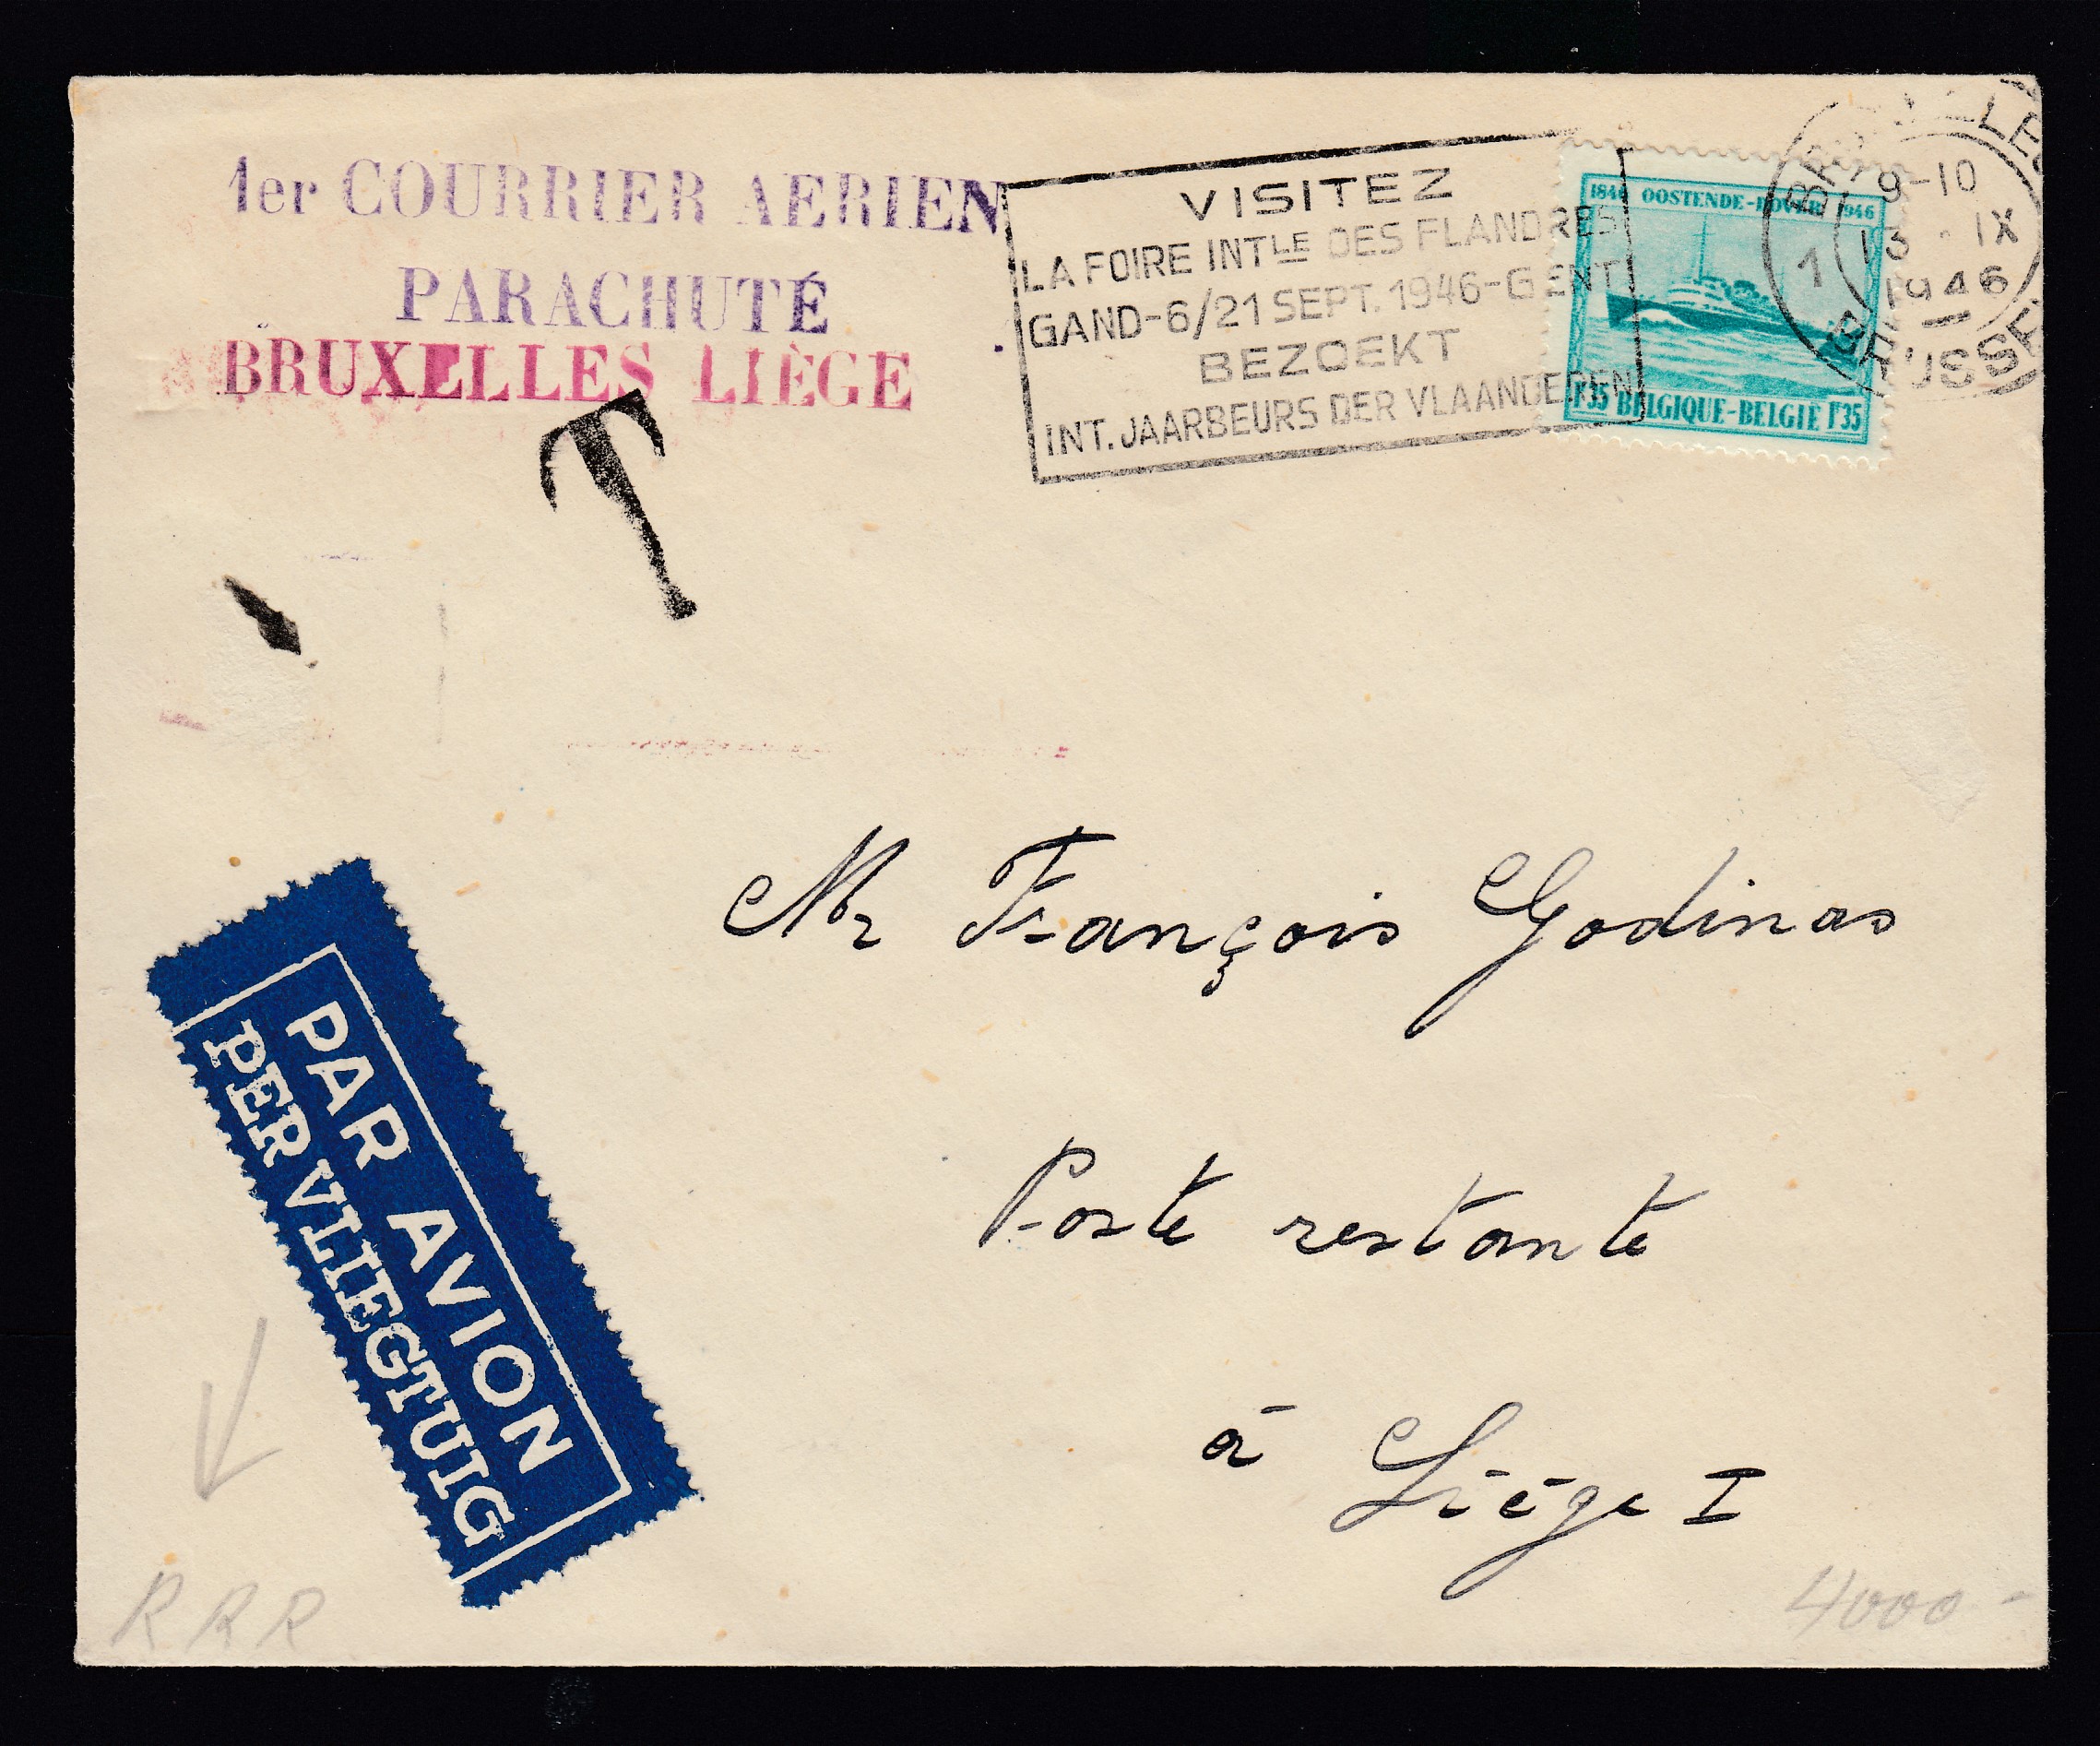 1er COURRIER AERIEN
PARACHUTÉ
BRUXELLES LIÈGE
T
VISITEZ
LA FOIRE INTLE DES FLANDRES
GAND-6/21 SEPT. 1946-GENT
BEZOEKT
INT. JAARBEURS DER VLAANDEREN
1846 OOSTENDE-DOVER 1946
1F35 BELGIQUE-BELGIE 1F35
9-10
13 · IX
1946
1
BRUSSEL
Mr François Godinas
Poste restante
à Liége I
PAR AVION
PER VLIEGTUIG
RRR
4000-